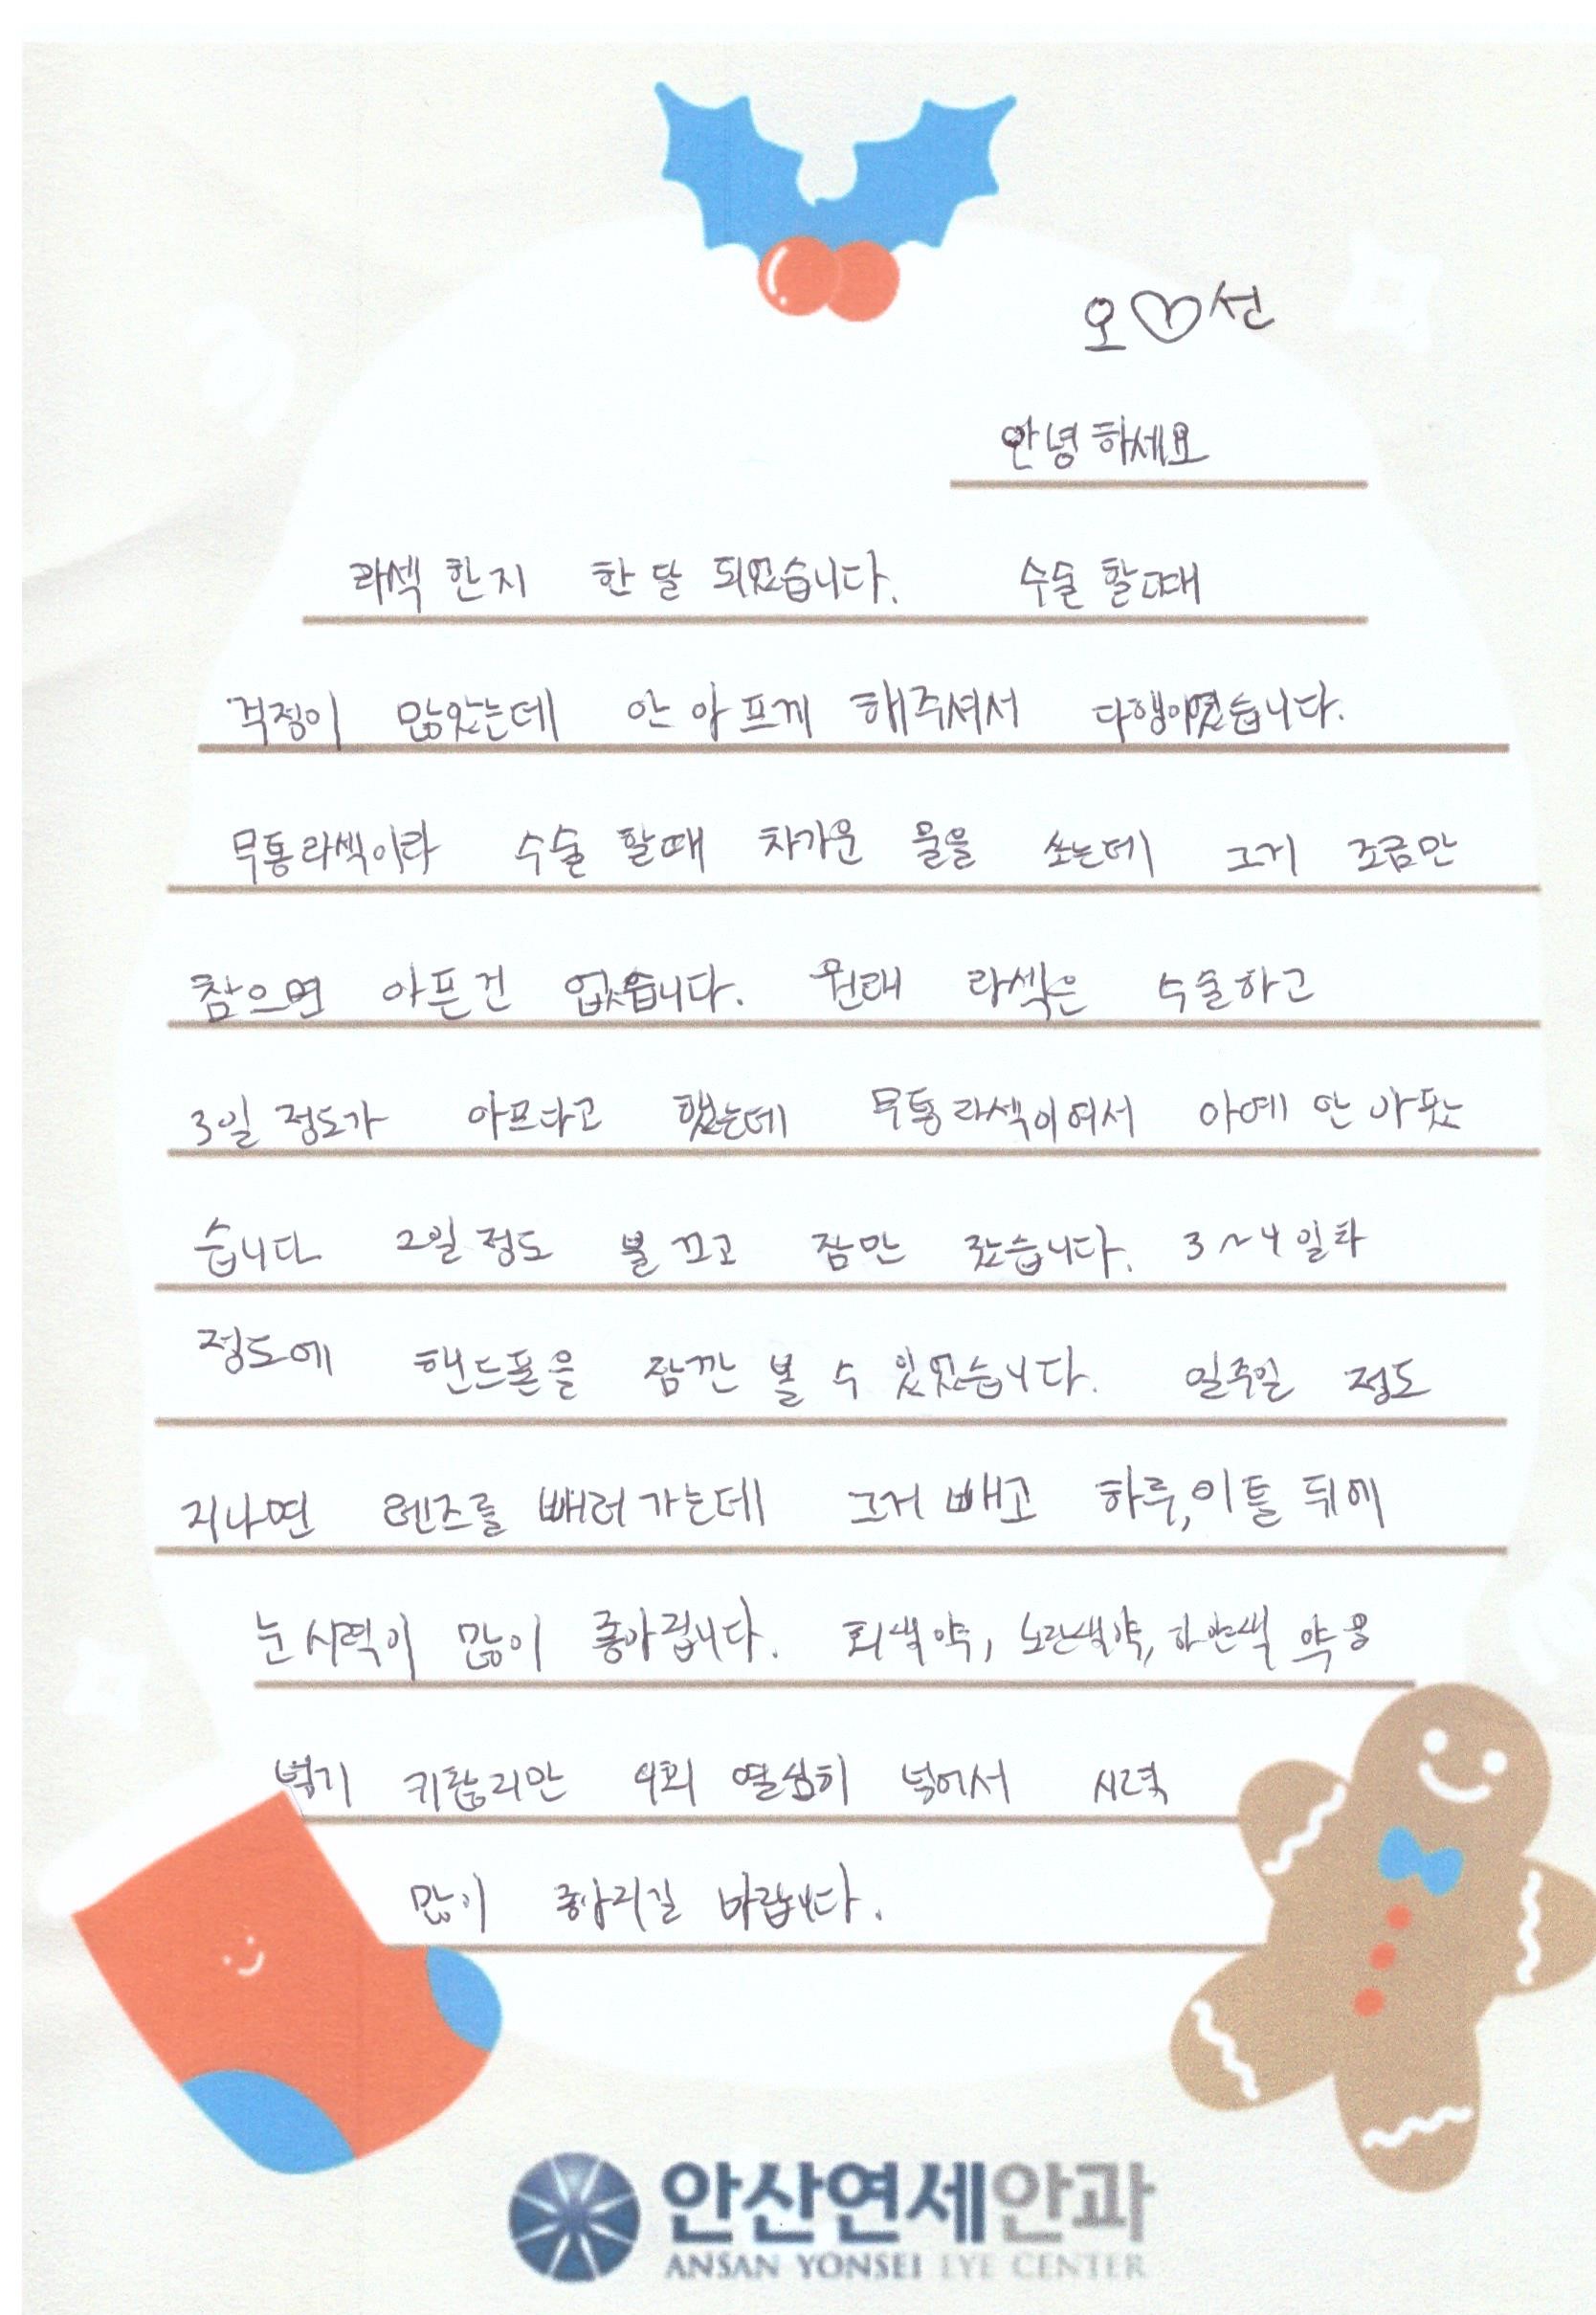 오♡선
안녕하세요
라섹 한지 한달 되었습니다. 수술 할때
걱정이 많았는데 안 아프게 해주셔서 다행이였습니다.
무통라섹이라 수술 할때 차가운 물을 쏘는데 그거 조금만
참으면 아픈건 없습니다. 원래 라섹은 수술하고
3일 정도가 아프다고 했는데 무통라섹이여서 아예 안 아팠
습니다 2일정도 불 끄고 잠만 잤습니다. 3~4일차
정도에 핸드폰을 잠깐 볼 수 있었습니다. 일주일 정도
지나면 렌즈를 빼러가는데 그거 빼고 하루,이틀 뒤에
눈 시력이 많이 좋아집니다. 회색약, 노란색약, 하얀색 약 용
넣기 귀찮지만 4회 열심히 넣어서 시력
많이 좋아지길 바랍니다.
안산연세안과
ANSAN YONSEI EYE CENTER